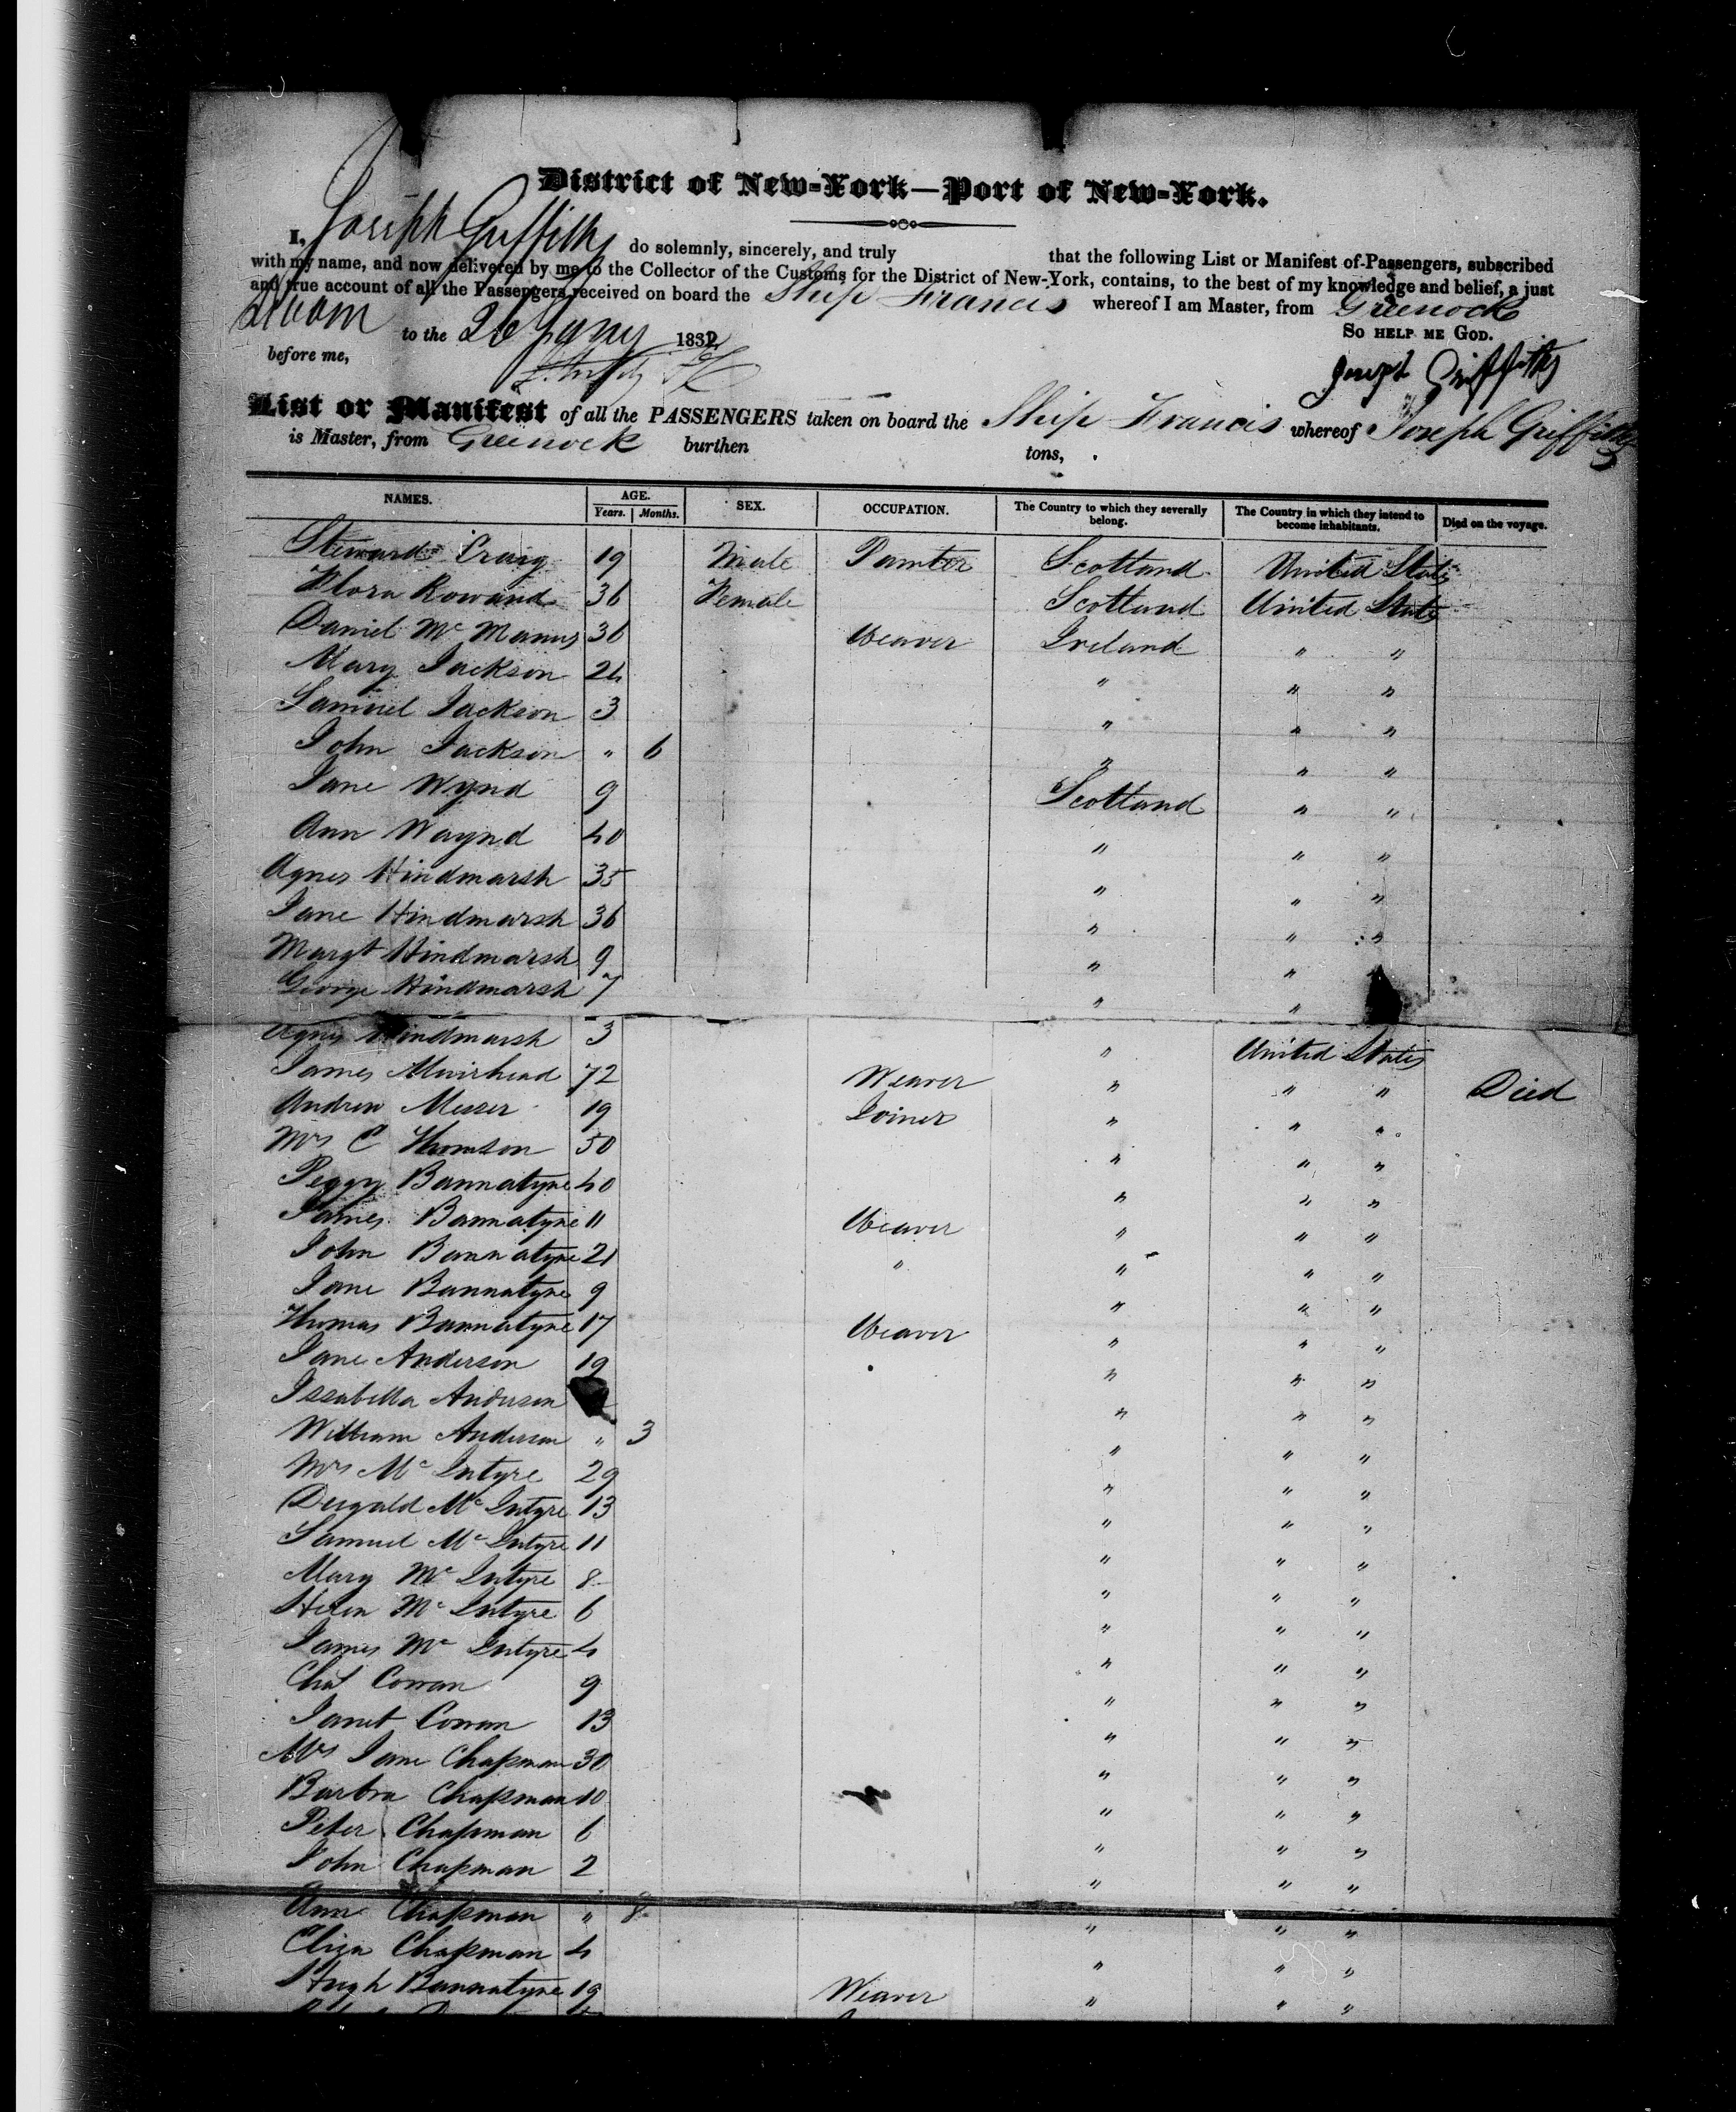 District of New-York—Port of New-York.
I, Joseph Griffiths do solemnly, sincerely, and truly that the following List or Manifest of Passengers, subscribed
with my name, and now delivered by me to the Collector of the Customs for the District of New-York, contains, to the best of my knowledge and belief, a just
and true account of all the Passengers received on board the Ship Francis whereof I am Master, from Greenock
Sworn to the 26 Jany 1832 So HELP ME GOD.
before me, Joseph Griffiths
List or Manifest of all the PASSENGERS taken on board the Ship Francis whereof Joseph Griffiths
is Master, from Greenock burthen tons,
NAMES. AGE. Years. Months. SEX. OCCUPATION. The Country to which they severally belong. The Country in which they intend to become inhabitants. Died on the voyage.
Steward Craig 19 Male Painter Scotland United States
Flora Rowand 36 Female Scotland United States
Daniel Mc Manus 36 Weaver Ireland " "
Mary Jackson 24 " " "
Samuel Jackson 3 " " "
John Jackson " 6 " " "
Jane Wynd 9 Scotland " "
Ann Waynd 40 " " "
Agnes Hindmarsh 35 " " "
Jane Hindmarsh 36 " " "
Margt Hindmarsh 9 " "
George Hindmarsh 7 " "
Agnes Hindmarsh 3 " United States
James Muirhead 72 Weaver " " " Died
Andrew Mercer 19 Joiner " " "
Mrs C Thomson 50 " " "
Peggy Bannatyne 40 " " "
James Bannatyne 11 Weaver " " "
John Bannatyne 21 " " " "
Jane Bannatyne 9 " " "
Thomas Bannatyne 17 Weaver " " "
Jane Anderson 19 " " "
Issabella Anderson " " "
William Anderson " 3 " " "
Mrs Mc Intyre 29 " " "
Dugald Mc Intyre 13 " " "
Samuel Mc Intyre 11 " " "
Mary Mc Intyre 8 " " "
Helen Mc Intyre 6 " " "
James Mc Intyre 4 " " "
Chs Cowan 9 " " "
Janet Cowan 13 " " "
Mrs Jane Chapman 30 " " "
Barbra Chapman 10 " " "
Peter Chapman 6 " " "
John Chapman 2 " " "
Ann Chapman " 8 " " "
Eliza Chapman 4 " " "
Hugh Bannatyne 19 Weaver " " "